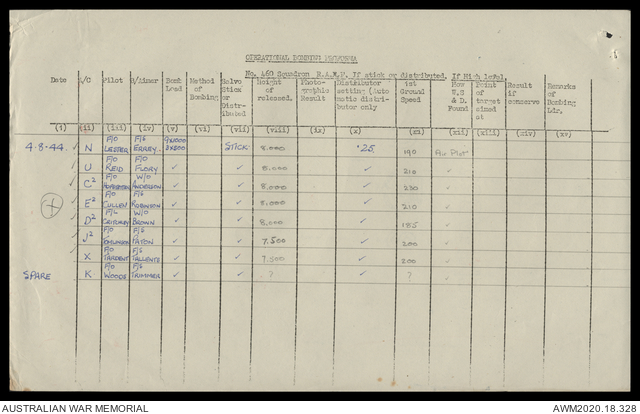 OPERATIONAL BOMBING PROFORMA
No. 460 Squadron R.A.A.F. If stick or distributed. If High level.
Date A/C Pilot B/Aimer Bomb Load Method of Bombing Salvo Stick or Distributed Height of released. Photographic Result Distributor setting (Automatic distributor only 1st Ground Speed How W.S & D. Found Point of target aimed at Result if conserve Remarks of Bombing Ldr.
(i) (ii) (iii) (iv) (v) (vi) (vii) (viii) (ix) (x) (xi) (xii) (xiii) (xiv) (xv)
4.8.44. ✓ N F/O LESTER F/S ERREY 9x1000 3x500 STICK 8,000 .25 190 Air Plot
✓ U F/O REID F/O FLORY ✓ ✓ 8,000 ✓ 210 ✓
✓ C² F/O W/O ANDERSON ✓ ✓ 8,000 ✓ 230 ✓
✓ E² F/O CULLEN F/S ROBINSON ✓ ✓ 8,000 ✓ 210 ✓
✓ D² F/L CRITCHLEY W/O BROWN ✓ ✓ 8,000 ✓ 185 ✓
✓ J² F/O F/S PATON ✓ ✓ 7,500 ✓ 200 ✓
✓ X F/O TARDENT F/S TALLENTS ✓ ✓ 7,500 ✓ 200 ✓
SPARE K F/O WOODS F/S TRIMMER ✓ ✓ ? ✓ ? ✓
AUSTRALIAN WAR MEMORIAL
AWM2020.18.328